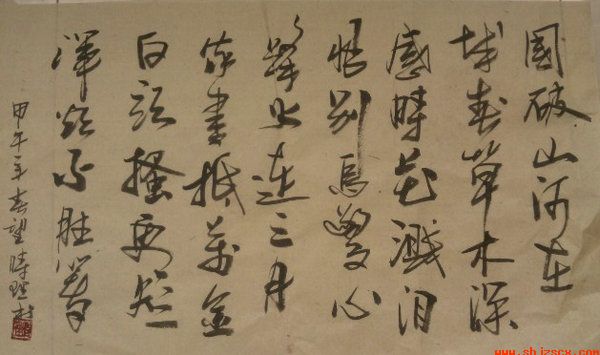 國破山河在
城春草木深
感時花濺泪
恨别鳥驚心
烽火連三月
家書抵萬金
白頭搔更短
渾欲不胜簪
甲午年春望
www.shizscx.com